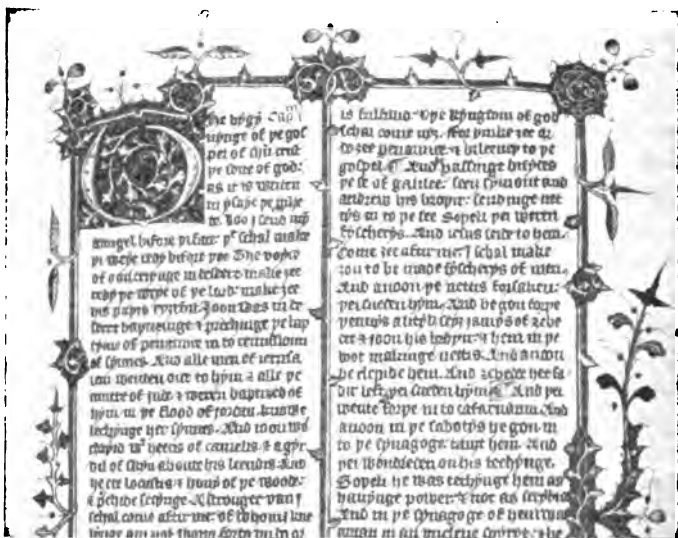 The bygy Cam
nynge of þe gos
pel of ihū crist
þe sone of god:
as it is writen
in ysaye þe
te. Loo I send myn
aungel bifore þi face: þᵗ schal make
þi weye redy bifore þee The voyce
of oon criynge in desert: make zee
redy þe weye of þe lord: make zee
his paþis ryztful. Joon was in de
sert baptisynge & prechinge þe bap
tysm of penaunce in to remissioun
of synnes. And alle men of ierusa
lem wenten out to hym & alle þe
cuntre of jude & weren baptised of
hym in þe flood of jordan knowle
lechynge her synnes. And ioon was
cloþid wᵗ heeris of camelis & a gyr
dil of skyn aboute his leendis: And
he eet locustis & hony of þe woode:
& prechide seiynge. A strenger þan I
schal come aftir me: of whom I kne
lynge am not forto vndo or
is fulfild. & þe kyngdom of god
schal come niz. For þinke zee or
do zee penaunce & bileeuep to þe
gospel. And passinge bisydes
þe see of galilee: seez symont and
andrew his broþer: sendynge net
tys in to þe see Soþeli þei weren
fyscherys. And iesus seide to hem.
Come zee aftir me: I schal make
zou to be made fyscherys of men.
And anoon þe nettis forsaken:
þei sueden hym. And he gon forþe
þennys a lityl: seez jamys of zebe
dee & joon his broþer: & hem in þe
boot makinge nettis. And anoon
he clepide hem. And zebede her fa
dir left: þei sueden hym. And þei
wente forþe in to cafarnaum. And
anoon in þe sabotys he gon in
to þe synagoge: tauzt hem. And
þei wondreden on his techynge.
Soþeli he was techynge hem as
hauynge power: & not as scribis
And in þe synagoge of hem was
a man in an vnclene spiryt: & he